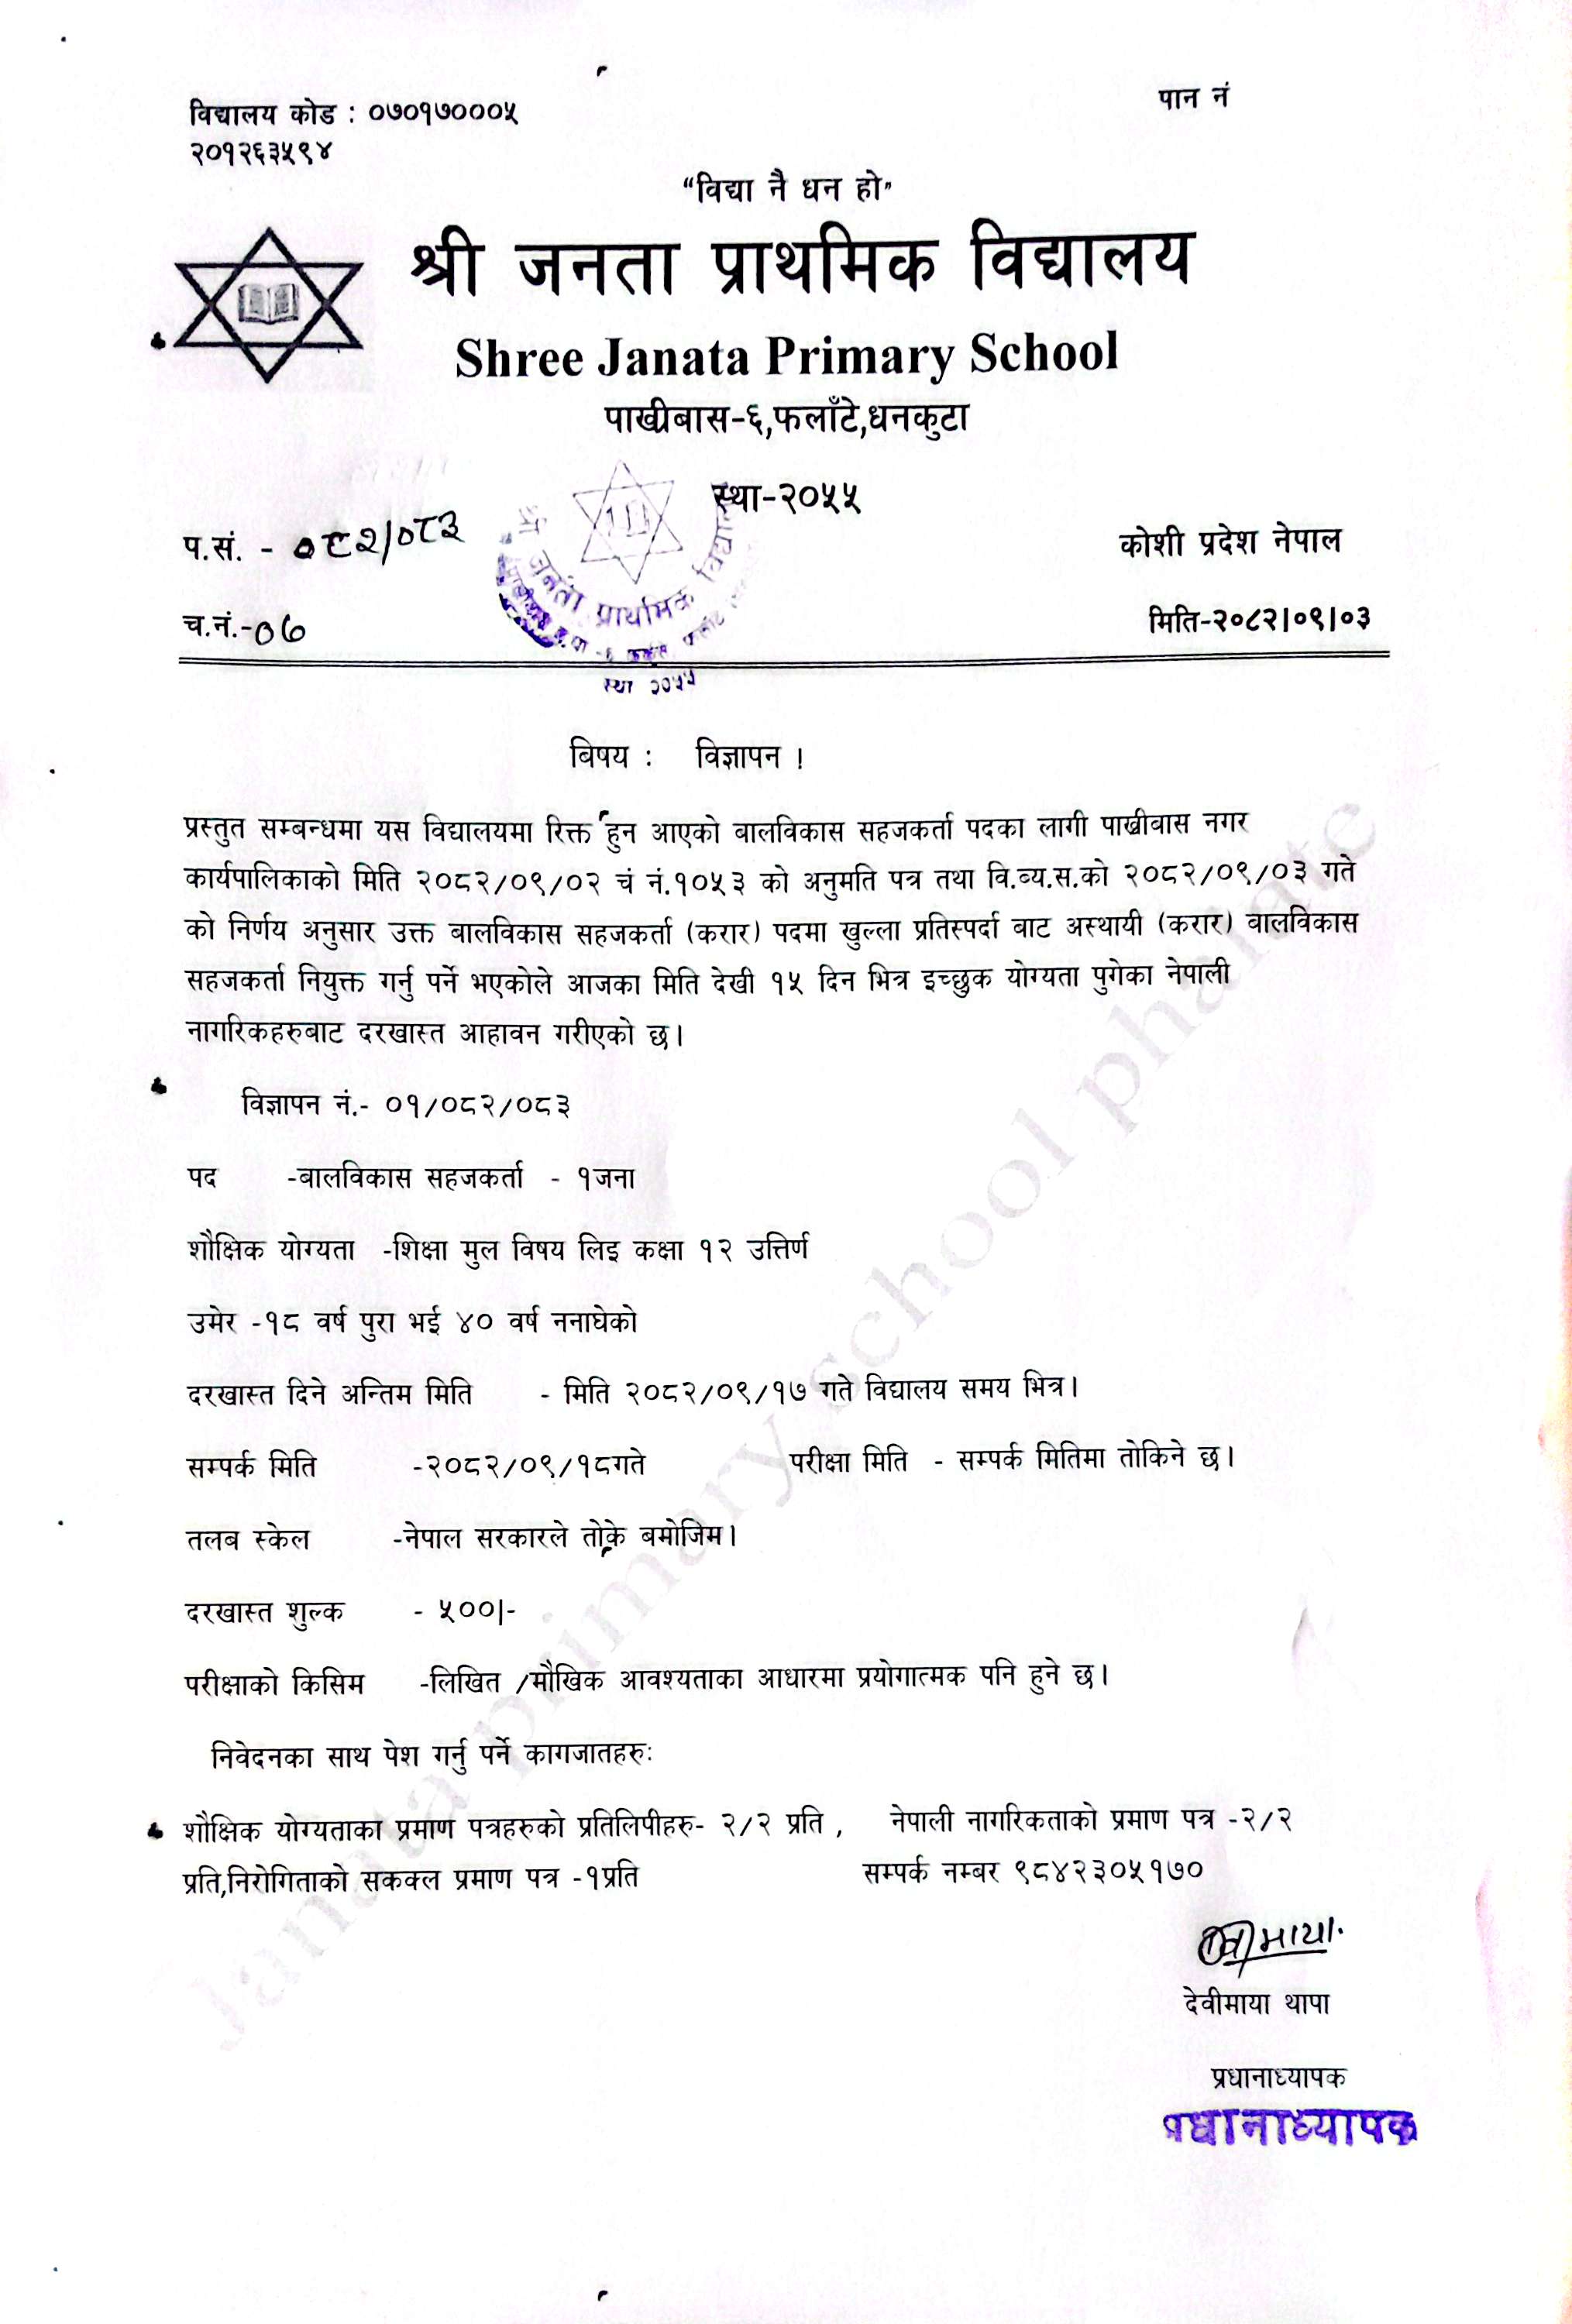 विद्यालय कोड : ०७०१७०००५
पान नं
२०१२६३५९४
“विद्या नै धन हो”
श्री जनता प्राथमिक विद्यालय
Shree Janata Primary School
पाख्रीबास-६,फलाँटे,धनकुटा
स्था-२०५५
प.सं. - ०८२/०८३
कोशी प्रदेश नेपाल
च.नं.-०७
मिति-२०८२|०९|०३
श्री जनता प्राथमिक विद्यालय
स्था २०५५
बिषय : विज्ञापन !
प्रस्तुत सम्बन्धमा यस विद्यालयमा रिक्त हुन आएको बालविकास सहजकर्ता पदका लागी पाख्रीबास नगर
कार्यपालिकाको मिति २०८२/०९/०२ चं नं.१०५३ को अनुमति पत्र तथा वि.ब्य.स.को २०८२/०९/०३ गते
को निर्णय अनुसार उक्त बालविकास सहजकर्ता (करार) पदमा खुल्ला प्रतिस्पर्दा बाट अस्थायी (करार) बालविकास
सहजकर्ता नियुक्त गर्नु पर्ने भएकोले आजका मिति देखी १५ दिन भित्र इच्छुक योग्यता पुगेका नेपाली
नागरिकहरुबाट दरखास्त आहावन गरीएको छ।
विज्ञापन नं.- ०१/०८२/०८३
पद -बालविकास सहजकर्ता - १जना
शौक्षिक योग्यता -शिक्षा मुल विषय लिइ कक्षा १२ उत्तिर्ण
उमेर -१८ वर्ष पुरा भई ४० वर्ष ननाघेको
दरखास्त दिने अन्तिम मिति - मिति २०८२/०९/१७ गते विद्यालय समय भित्र।
सम्पर्क मिति -२०८२/०९/१८गते परीक्षा मिति - सम्पर्क मितिमा तोकिने छ।
तलब स्केल -नेपाल सरकारले तोके बमोजिम।
दरखास्त शुल्क - ५००|-
परीक्षाको किसिम -लिखित /मौखिक आवश्यताका आधारमा प्रयोगात्मक पनि हुने छ।
निवेदनका साथ पेश गर्नु पर्ने कागजातहरुः
शौक्षिक योग्यताका प्रमाण पत्रहरुको प्रतिलिपीहरु- २/२ प्रति , नेपाली नागरिकताको प्रमाण पत्र -२/२
प्रति,निरोगिताको सकक्ल प्रमाण पत्र -१प्रति सम्पर्क नम्बर ९८४२३०५१७०
देवीमाया थापा
प्रधानाध्यापक
प्रधानाध्यापक
Janata primary school phalate